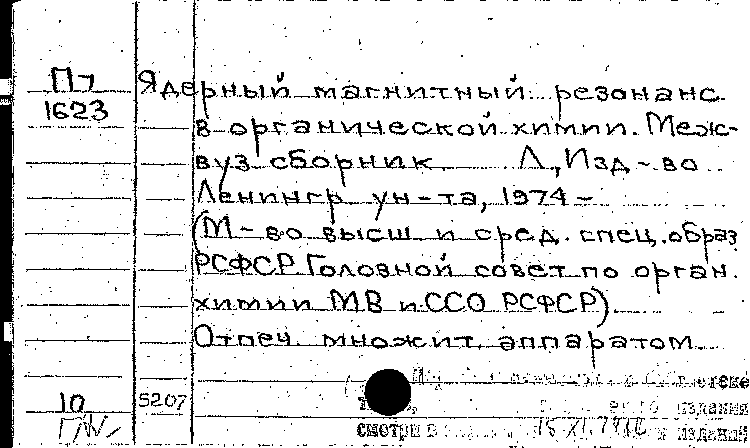 П7
1623
Ядерный магнитный резонанс
в органической химии. Меж-
вуз сборник Л., Изд-во
Ленингр. ун-та, 1974-
(М-во высш и сред. спец. образ
РСФСР. Головной совет по орган.
химии МВ и ССО РСФСР)
Отпеч. множит. аппаратом.
10
5207
издания
смотри в изданий